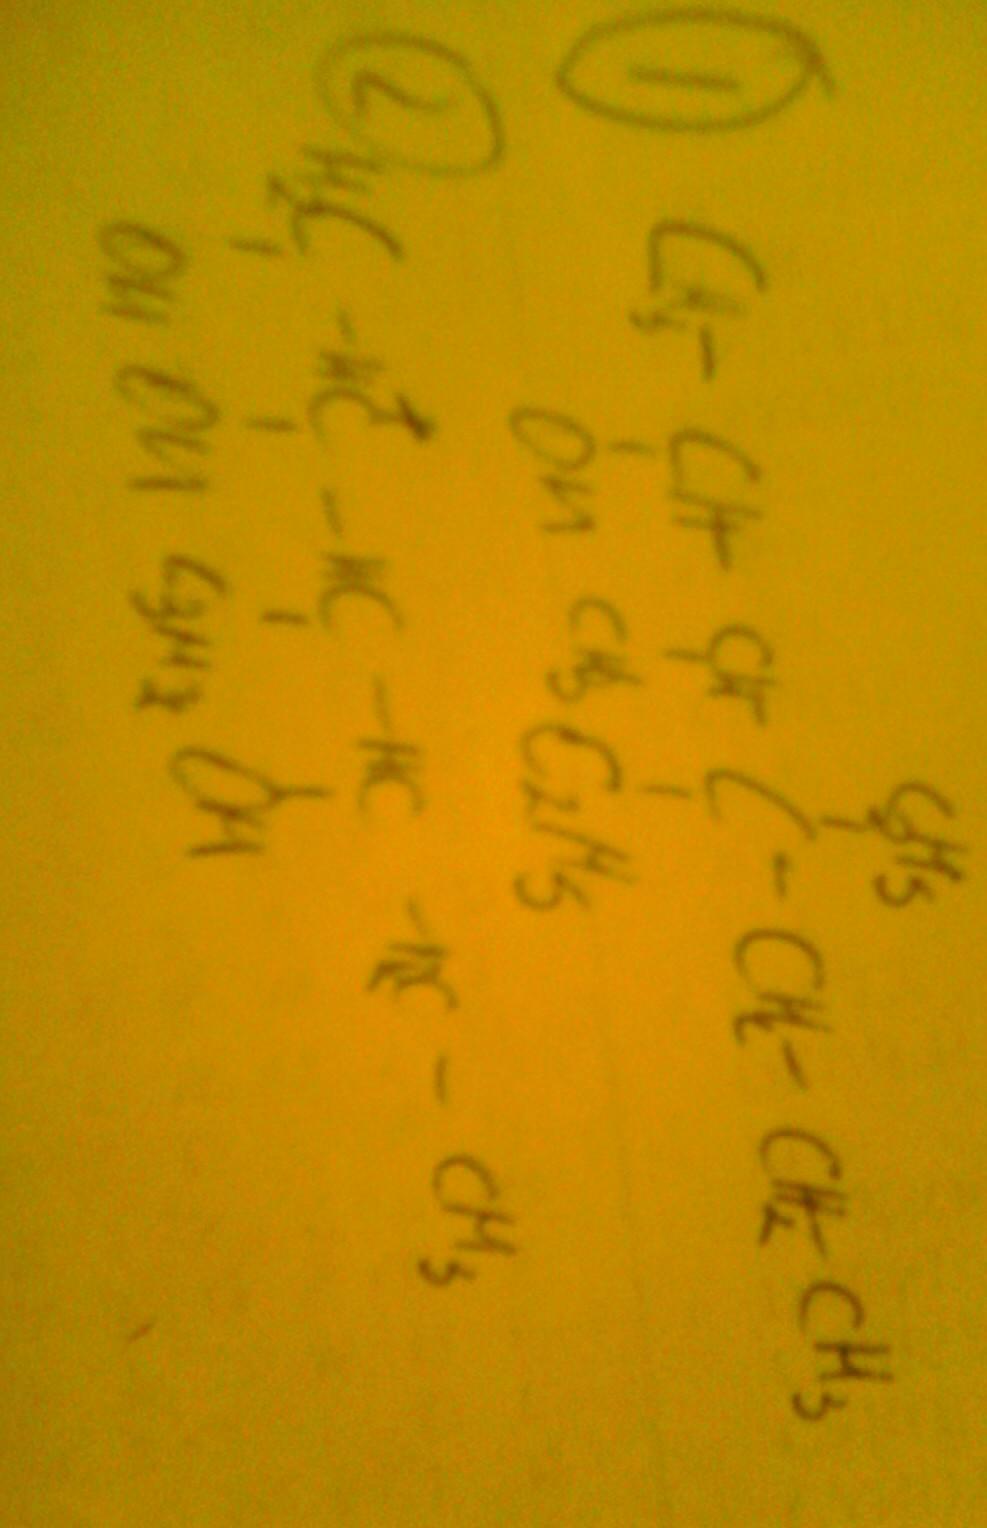 ① C2H5
CH3 - CH - CH - C - CH2 - CH2 - CH3
OH CH3 C2H5
② H2C - HC - HC - HC - H2C - CH3
OH OH C3H7 OH